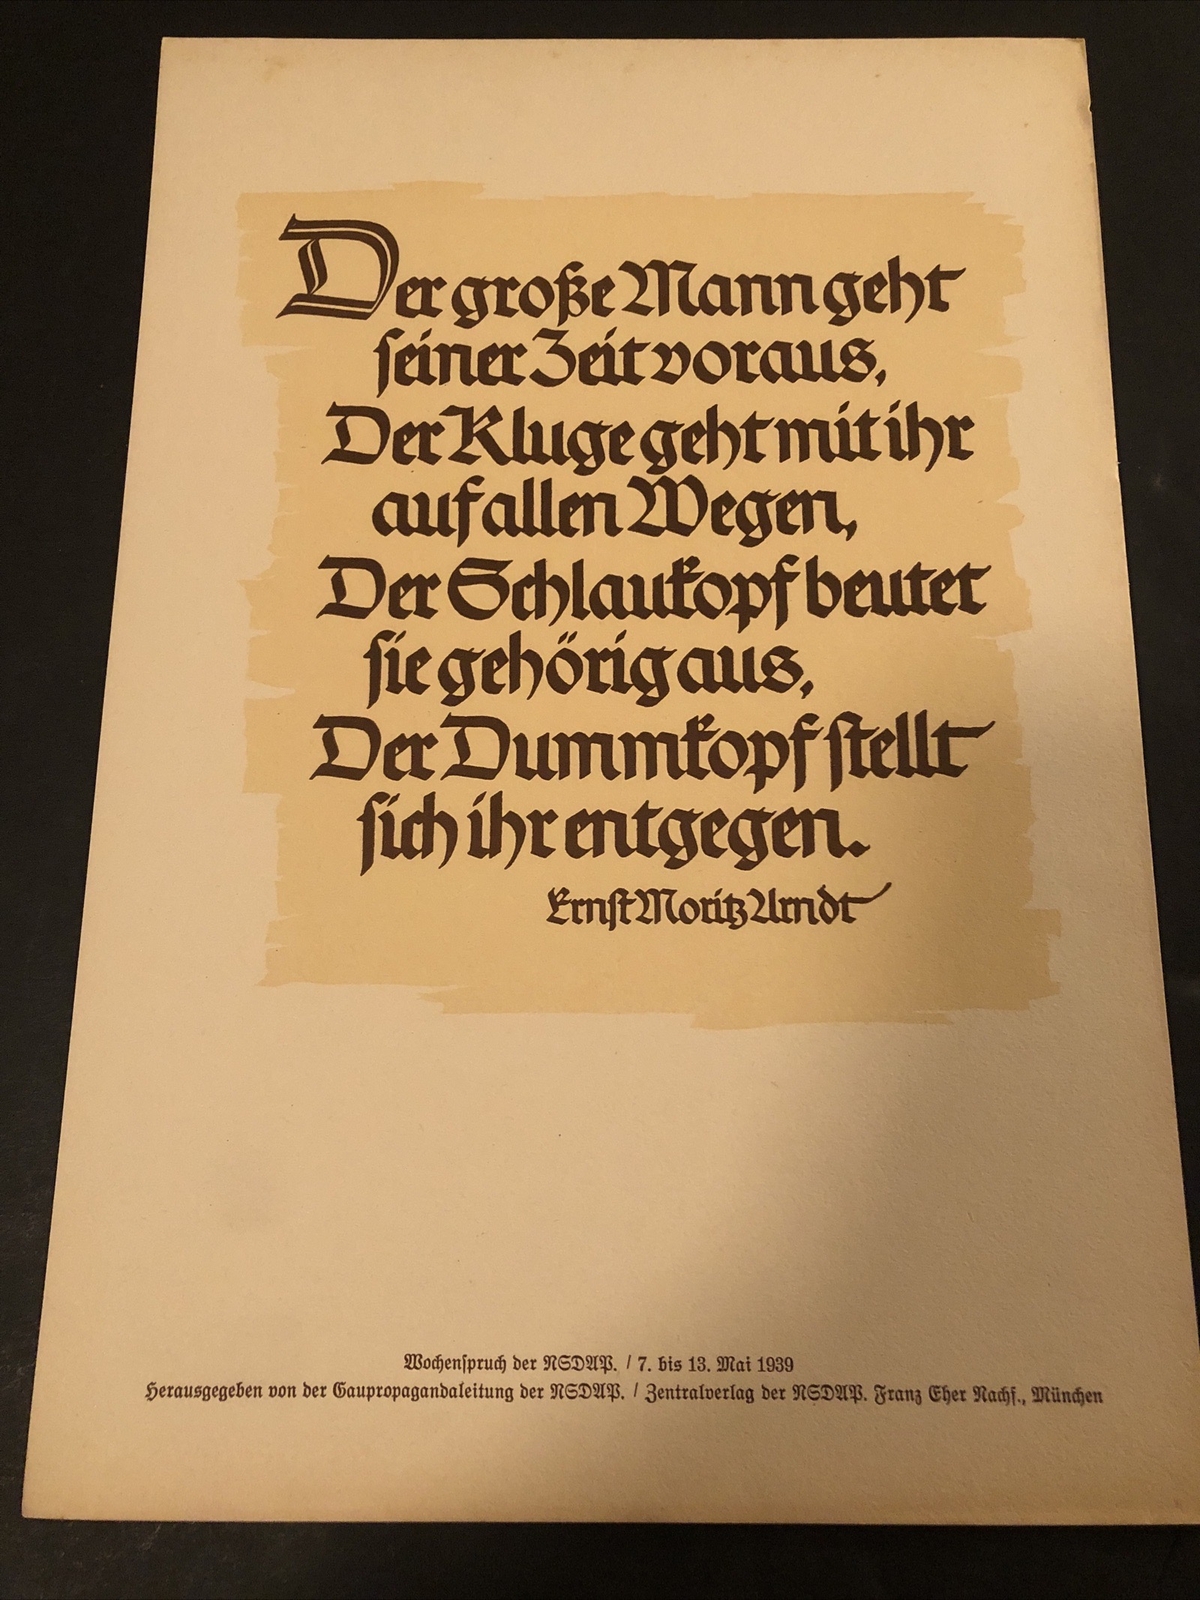 Der große Mann geht
seiner Zeit voraus,
Der Kluge geht mit ihr
auf allen Wegen,
Der Schlaukopf beutet
sie gehörig aus,
Der Dummkopf stellt
sich ihr entgegen.
Ernst Moritz Arndt
Wochenspruch der NSDAP. / 7. bis 13. Mai 1939
Herausgegeben von der Gaupropagandaleitung der NSDAP. / Zentralverlag der NSDAP. Franz Eher Nachf., München